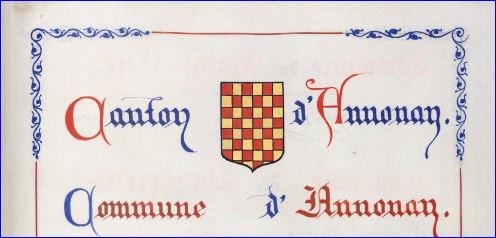 Canton d'Annonay.
Commune d'Annonay.